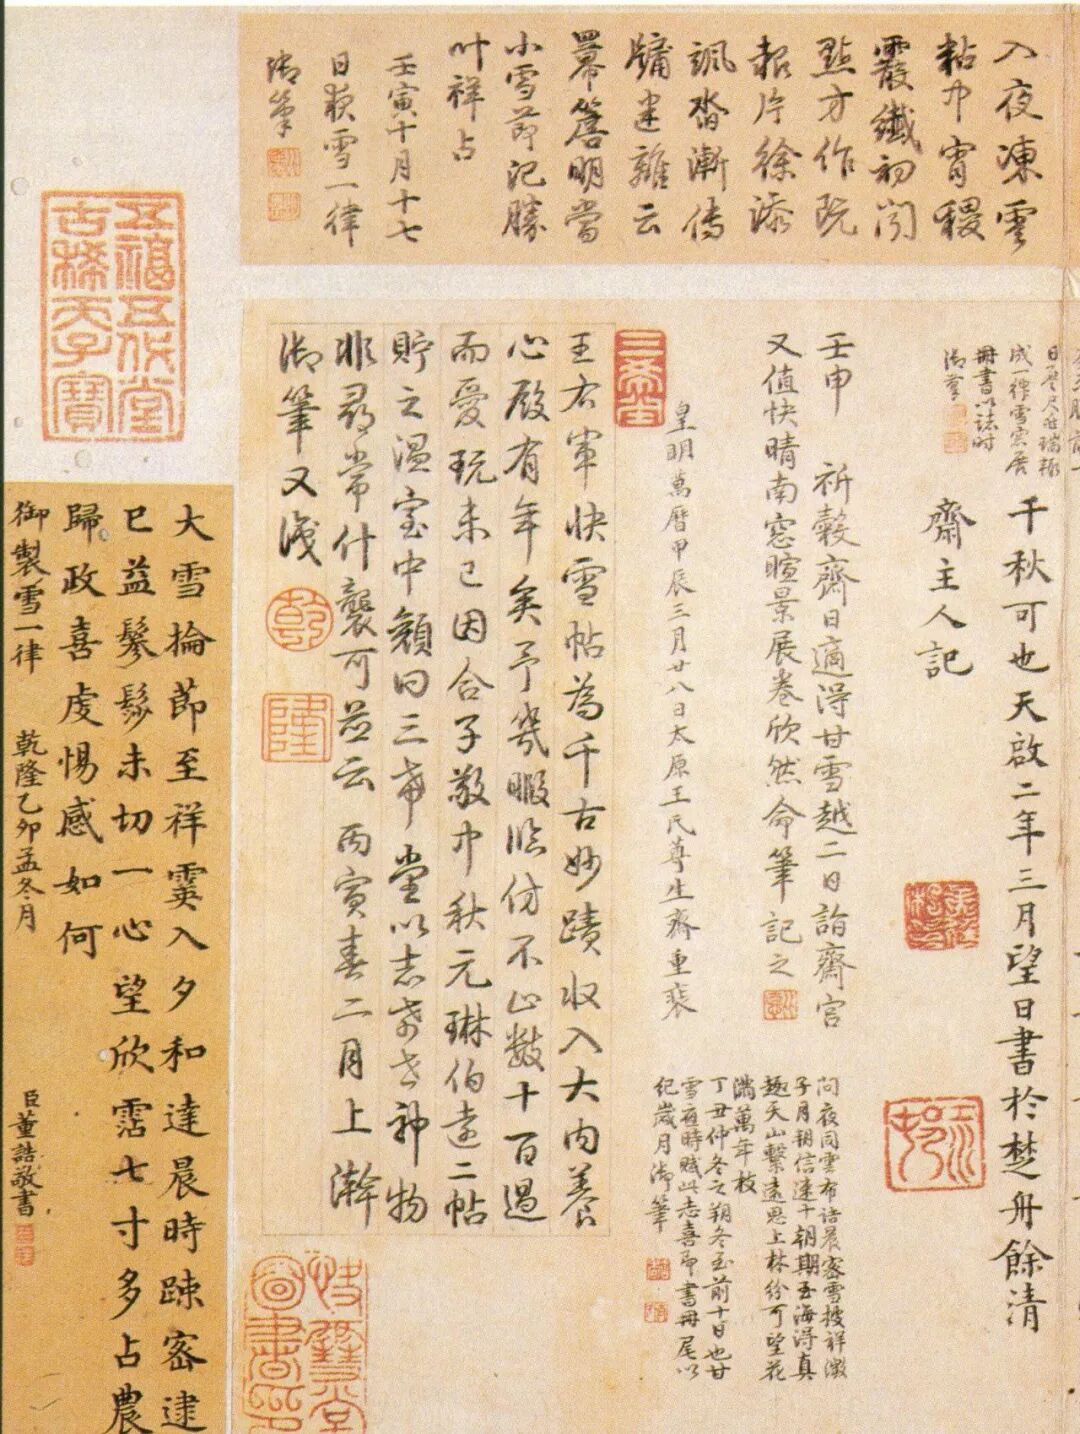 入夜凍雲
粘中宵稷
霰纖初聞
點方作玩
輕片徐添
颯沓漸傳
牖建難云
羃簷明當
小雪節記勝
叶祥占
壬寅十月十七
日夜雪一律
御筆
成一律雪窓展
冊書以誌時
御筆
千秋可也天啟二年三月望日書於楚舟餘清
齋主人記
壬申 祈穀齋日適得甘雪越二日詣齋宮
又值快晴南窓暄景展卷欣然命筆記之
問夜同雲布詰晨密雪摟祥徵
子月朔信達十朝期玉海得真
趣天山繫遠思上林紛可望花
滿萬年枝
丁丑仲冬之朔冬至前十日也甘
雪夜時賦此志喜即書冊尾以
紀歲月御筆
皇明萬曆甲辰三月廿八日太原王氏尊生齋重裝
三希堂
王右軍快雪帖為千古妙蹟收入大內養
心殿有年矣予幾暇臨仿不止數十百過
而愛玩未已因合子敬中秋元琳伯遠二帖
貯之溫室中顏曰三希堂以志希世神物
非尋常什襲可並云 丙寅春二月上澣
御筆又識
乾
隆
五福五代堂
古稀天子寶
快雪堂
圖書印
大雪掄節至祥霙入夕和達晨時疎密逮
巳益鬖髿未切一心望欣霑七寸多占農
歸政喜虔惕感如何
御製雪一律 乾隆乙卯孟冬月
臣董誥敬書